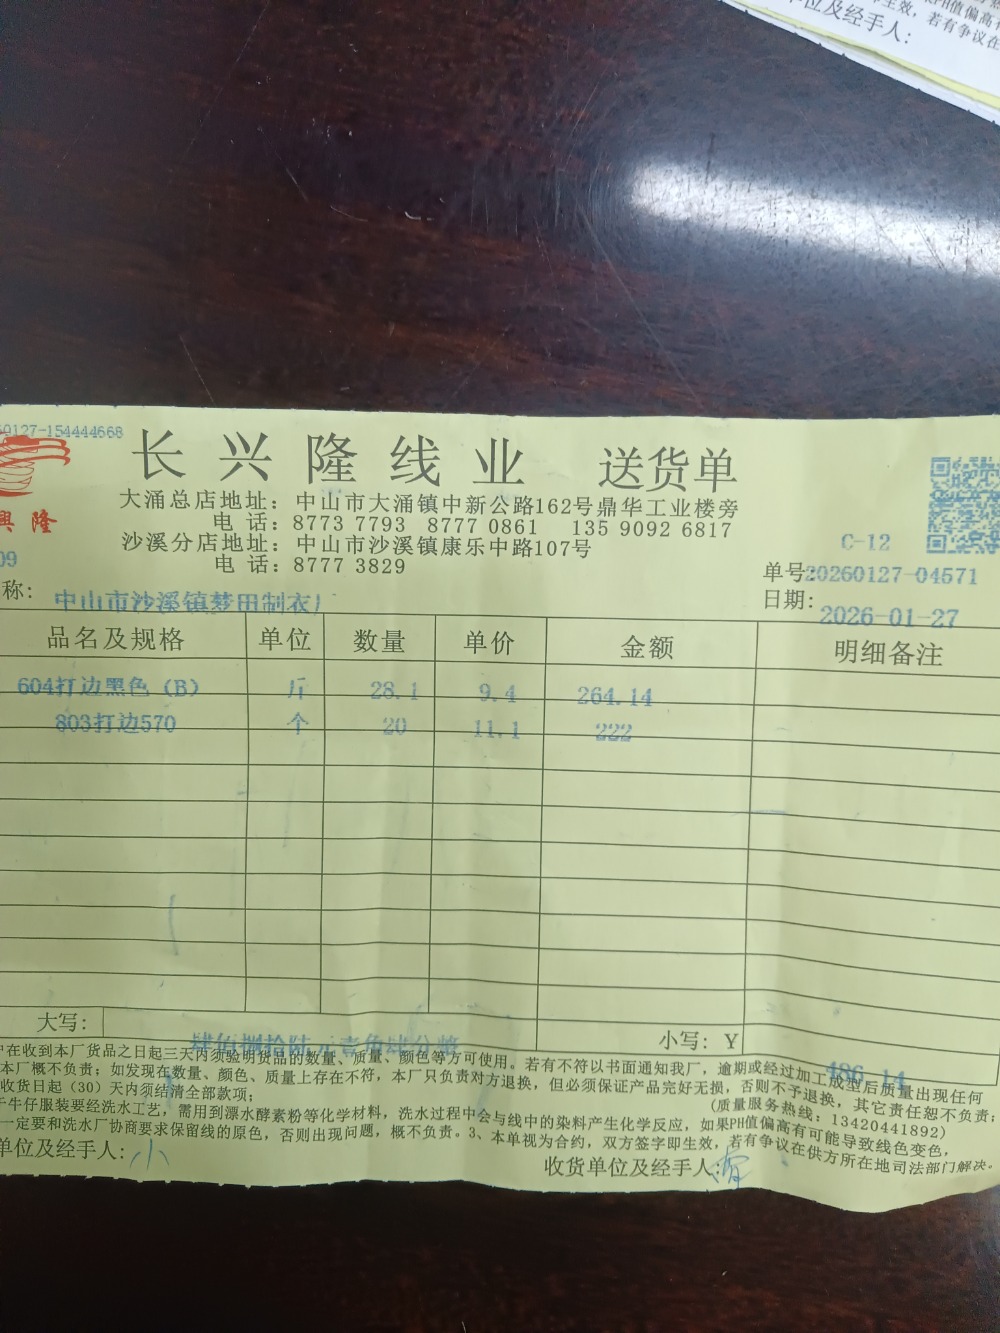 单位及经手人:
0127-154444668
长兴隆线业 送货单
興隆
大涌总店地址: 中山市大涌镇中新公路162号鼎华工业楼旁
电话: 8773 7793 8777 0861 135 9092 6817
沙溪分店地址: 中山市沙溪镇康乐中路107号
电话: 8777 3829
C-12
09
单号:20260127-04571
称: 中山市沙溪镇梦田制衣厂
日期: 2026-01-27
品名及规格 单位 数量 单价 金额 明细备注
604打边黑色 (B) 斤 28.1 9.4 264.14
803打边570 个 20 11.1 222
大写: 肆佰捌拾陆元壹角肆分整 小写: Y 486.14
在收到本厂货品之日起三天内须验明货品的数量、质量、颜色等方可使用。若有不符以书面通知我厂，逾期或经过加工成型后质量出现任何
本厂概不负责；如发现在数量、颜色、质量上存在不符，本厂只负责对方退换，但必须保证产品完好无损，否则不予退换，其它责任恕不负责；
收货日起（30）天内须结清全部款项；
(质量服务热线：13420441892)
牛仔服装要经洗水工艺，需用到漂水酵素粉等化学材料，洗水过程中会与线中的染料产生化学反应，如果PH值偏高有可能导致线色变色，
一定要和洗水厂协商要求保留线的原色，否则出现问题，概不负责。3、本单视为合约，双方签字即生效，若有争议在供方所在地司法部门解决。
单位及经手人: 小
收货单位及经手人: